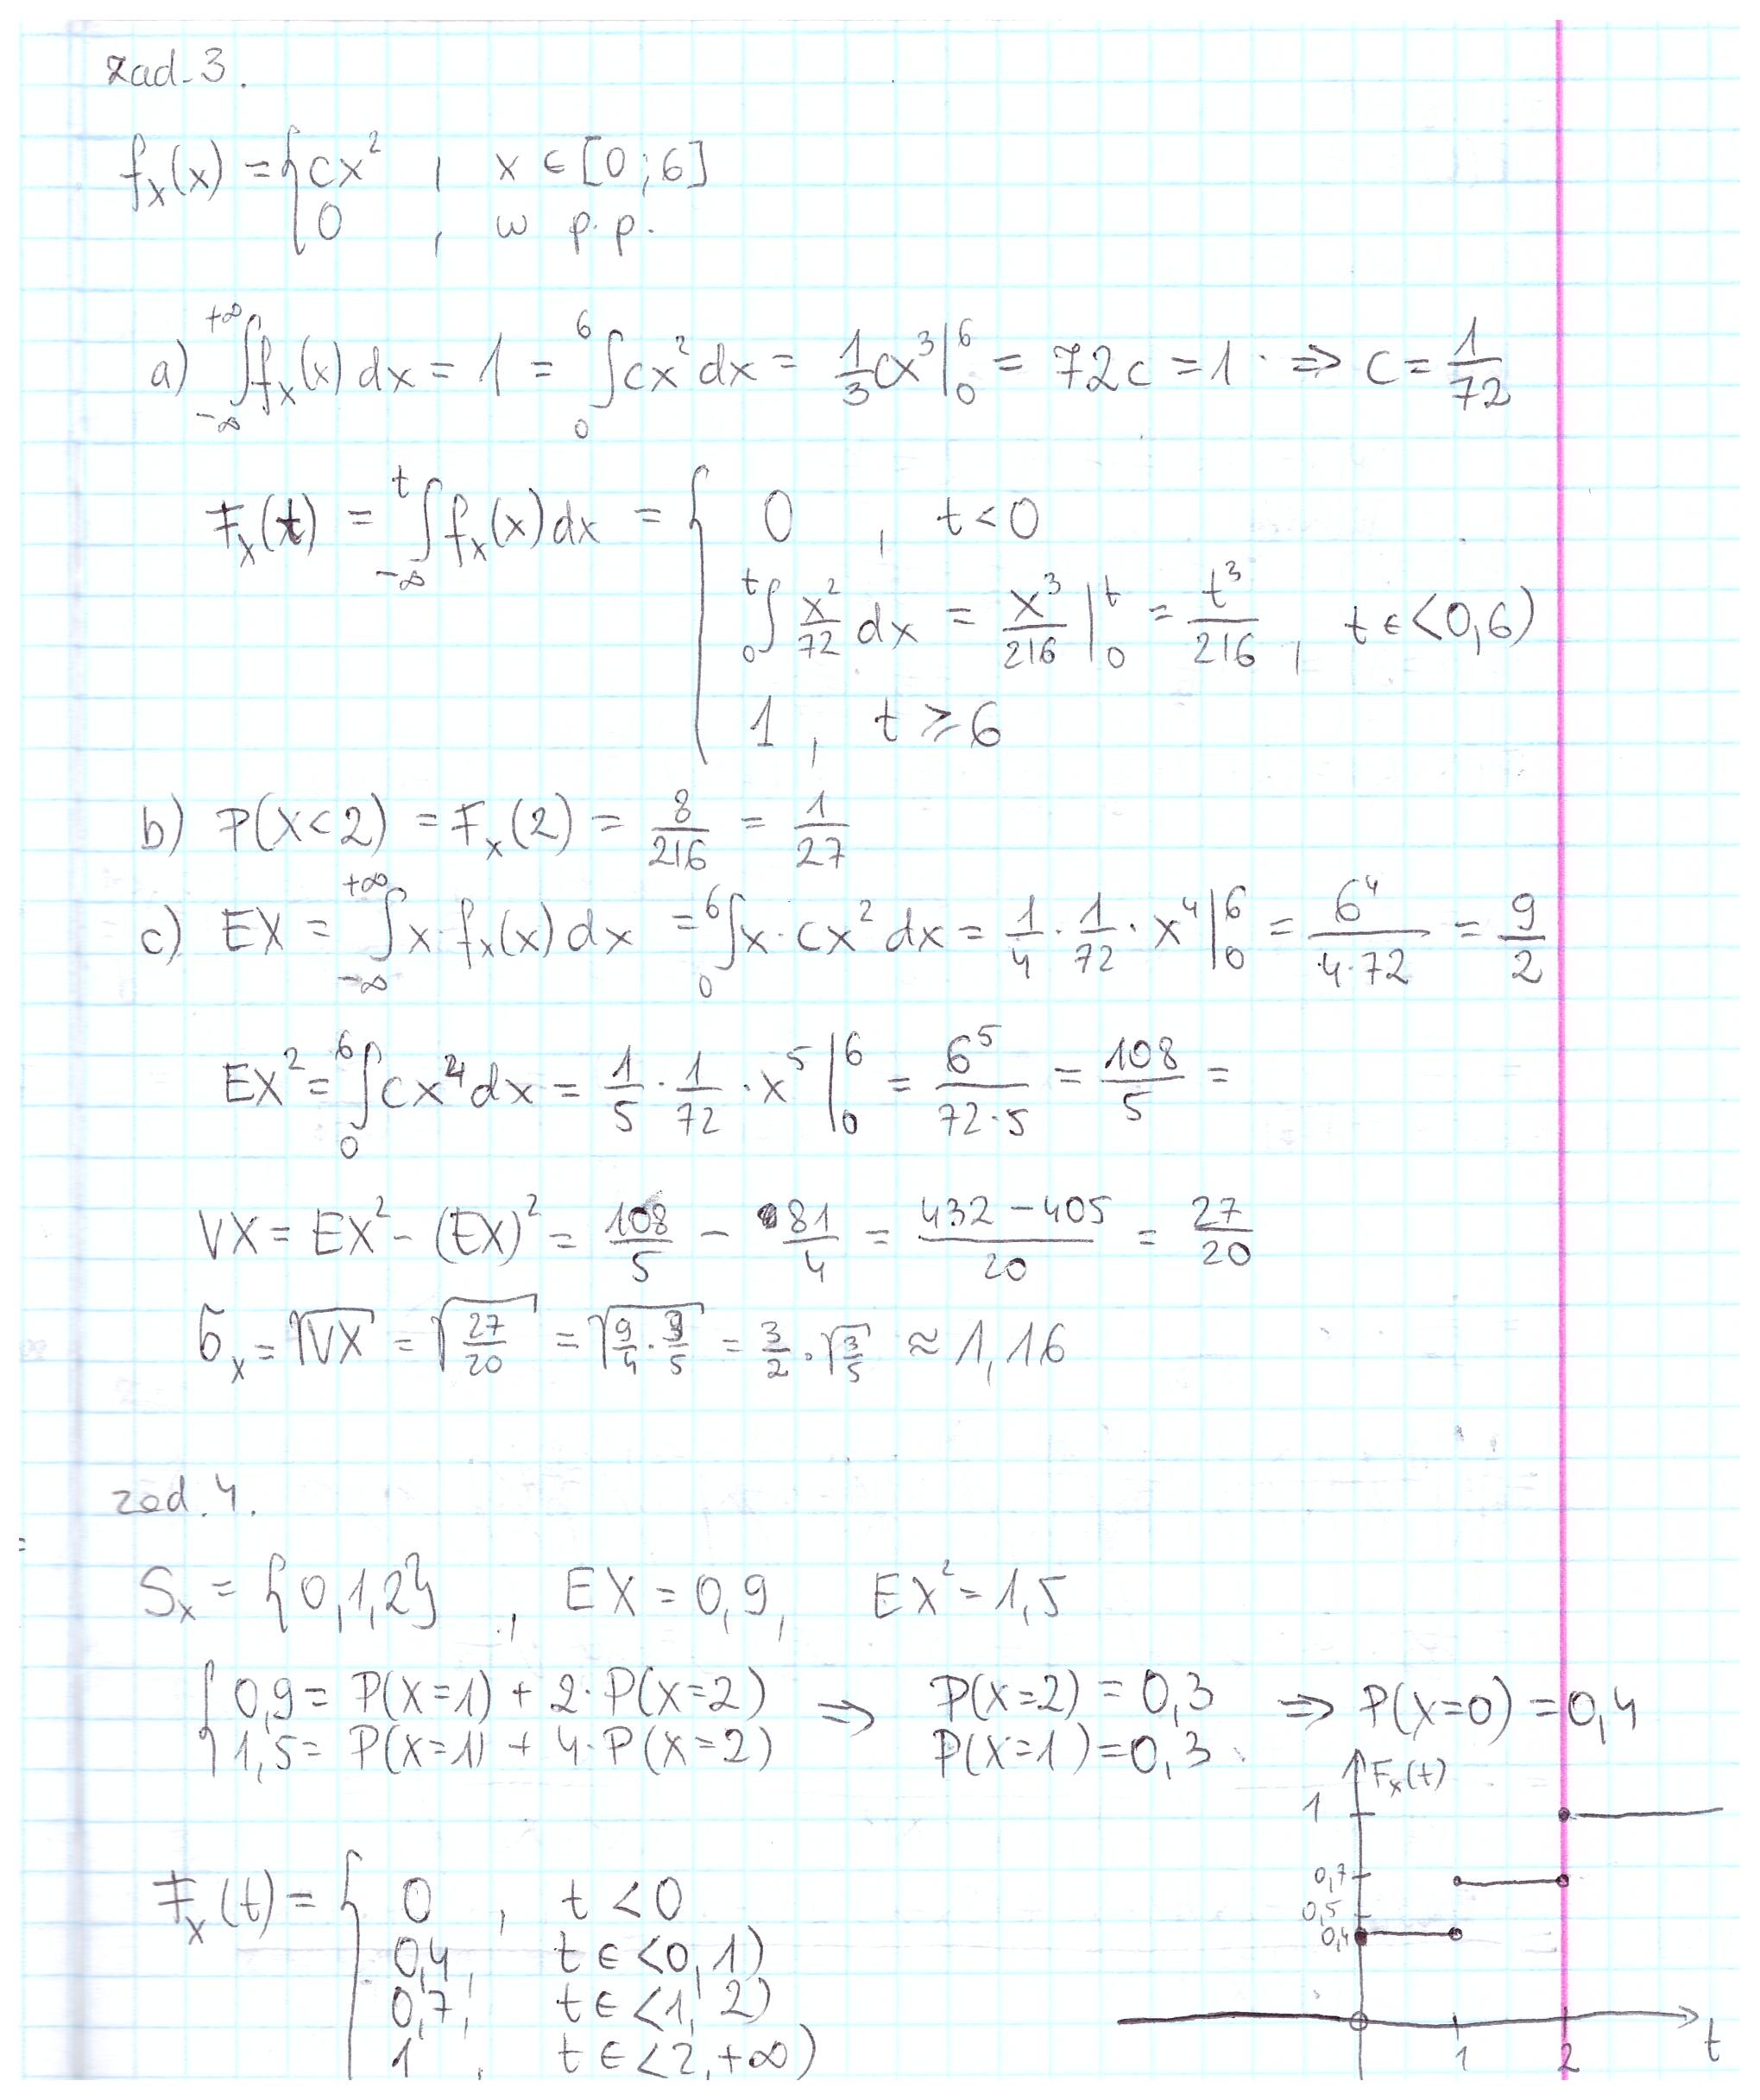 zad. 3.
f_X(x) = { cx² , x ∈ [0;6]
0 , w p.p.
a) ∫_{-∞}^{+∞} f_X(x) dx = 1 = ∫_0^6 cx² dx = 1/3 cx³ |_0^6 = 72c = 1 ⇒ c = 1/72
F_X(t) = ∫_{-∞}^t f_X(x) dx = { 0 , t < 0
∫_0^t x²/72 dx = x³/216 |_0^t = t³/216 , t ∈ <0,6)
1 , t ⩾ 6
b) P(X<2) = F_X(2) = 8/216 = 1/27
c) EX = ∫_{-∞}^{+∞} x · f_X(x) dx = ∫_0^6 x · cx² dx = 1/4 · 1/72 · x⁴ |_0^6 = 6⁴/(4·72) = 9/2
EX² = ∫_0^6 cx⁴ dx = 1/5 · 1/72 · x⁵ |_0^6 = 6⁵/(72·5) = 108/5 =
VX = EX² - (EX)² = 108/5 - 81/4 = (432-405)/20 = 27/20
σ_X = √VX = √(27/20) = √(9/4 · 3/5) = 3/2 · √(3/5) ≈ 1,16
zad. 4.
S_X = {0,1,2} , EX = 0,9, EX² = 1,5
{ 0,9 = P(X=1) + 2·P(X=2) ⇒ P(X=2) = 0,3 ⇒ P(X=0) = 0,4
1,5 = P(X=1) + 4·P(X=2) P(X=1) = 0,3
F_X(t) = { 0 , t < 0
0,4, t ∈ <0,1)
0,7, t ∈ <1,2)
1 , t ∈ <2,+∞)
F_X(t)
1
0,7
0,5
0,4
1 2 t